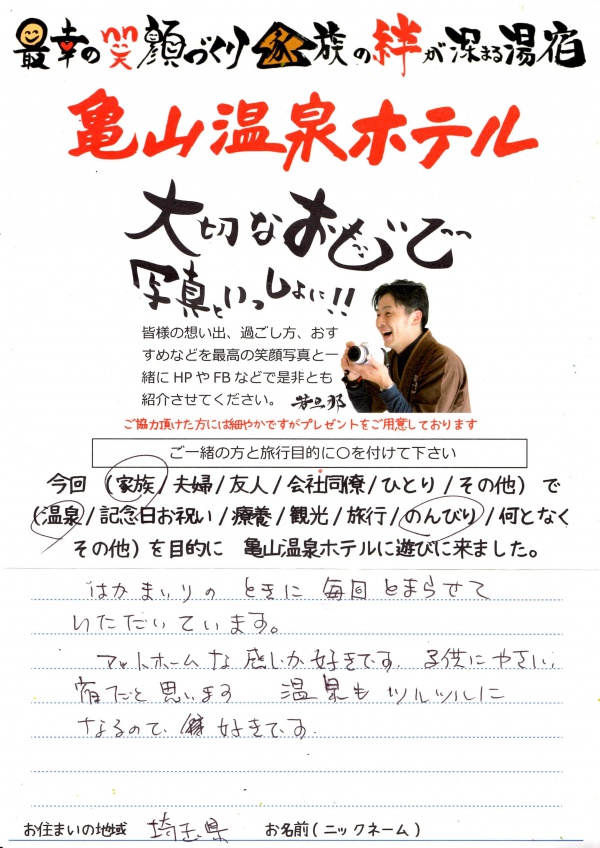 最幸の笑顔づくり 家族の絆が深まる湯宿
亀山温泉ホテル
大切なおもいで
写真といっしょに!!
皆様の想い出、過ごし方、おす
すめなどを最高の笑顔写真と一
緒に HP や FB などで是非とも
紹介させてください。 若旦那
ご協力頂けた方には細やかですがプレゼントをご用意しております
ご一緒の方と旅行目的に〇を付けて下さい
今回 (家族/夫婦/友人/会社同僚/ひとり/その他) で
(温泉/記念日お祝い/療養/観光/旅行/のんびり/何となく
その他) を目的に 亀山温泉ホテルに遊びに来ました。
はかまいりの ときに 毎回 とまらせて
いただいています。
アットホームな感じが好きです. 子供にやさしい
宿だと思います 温泉もツルツルに
なるので、 好きです.
お住まいの地域 埼玉県 お名前(ニックネーム)